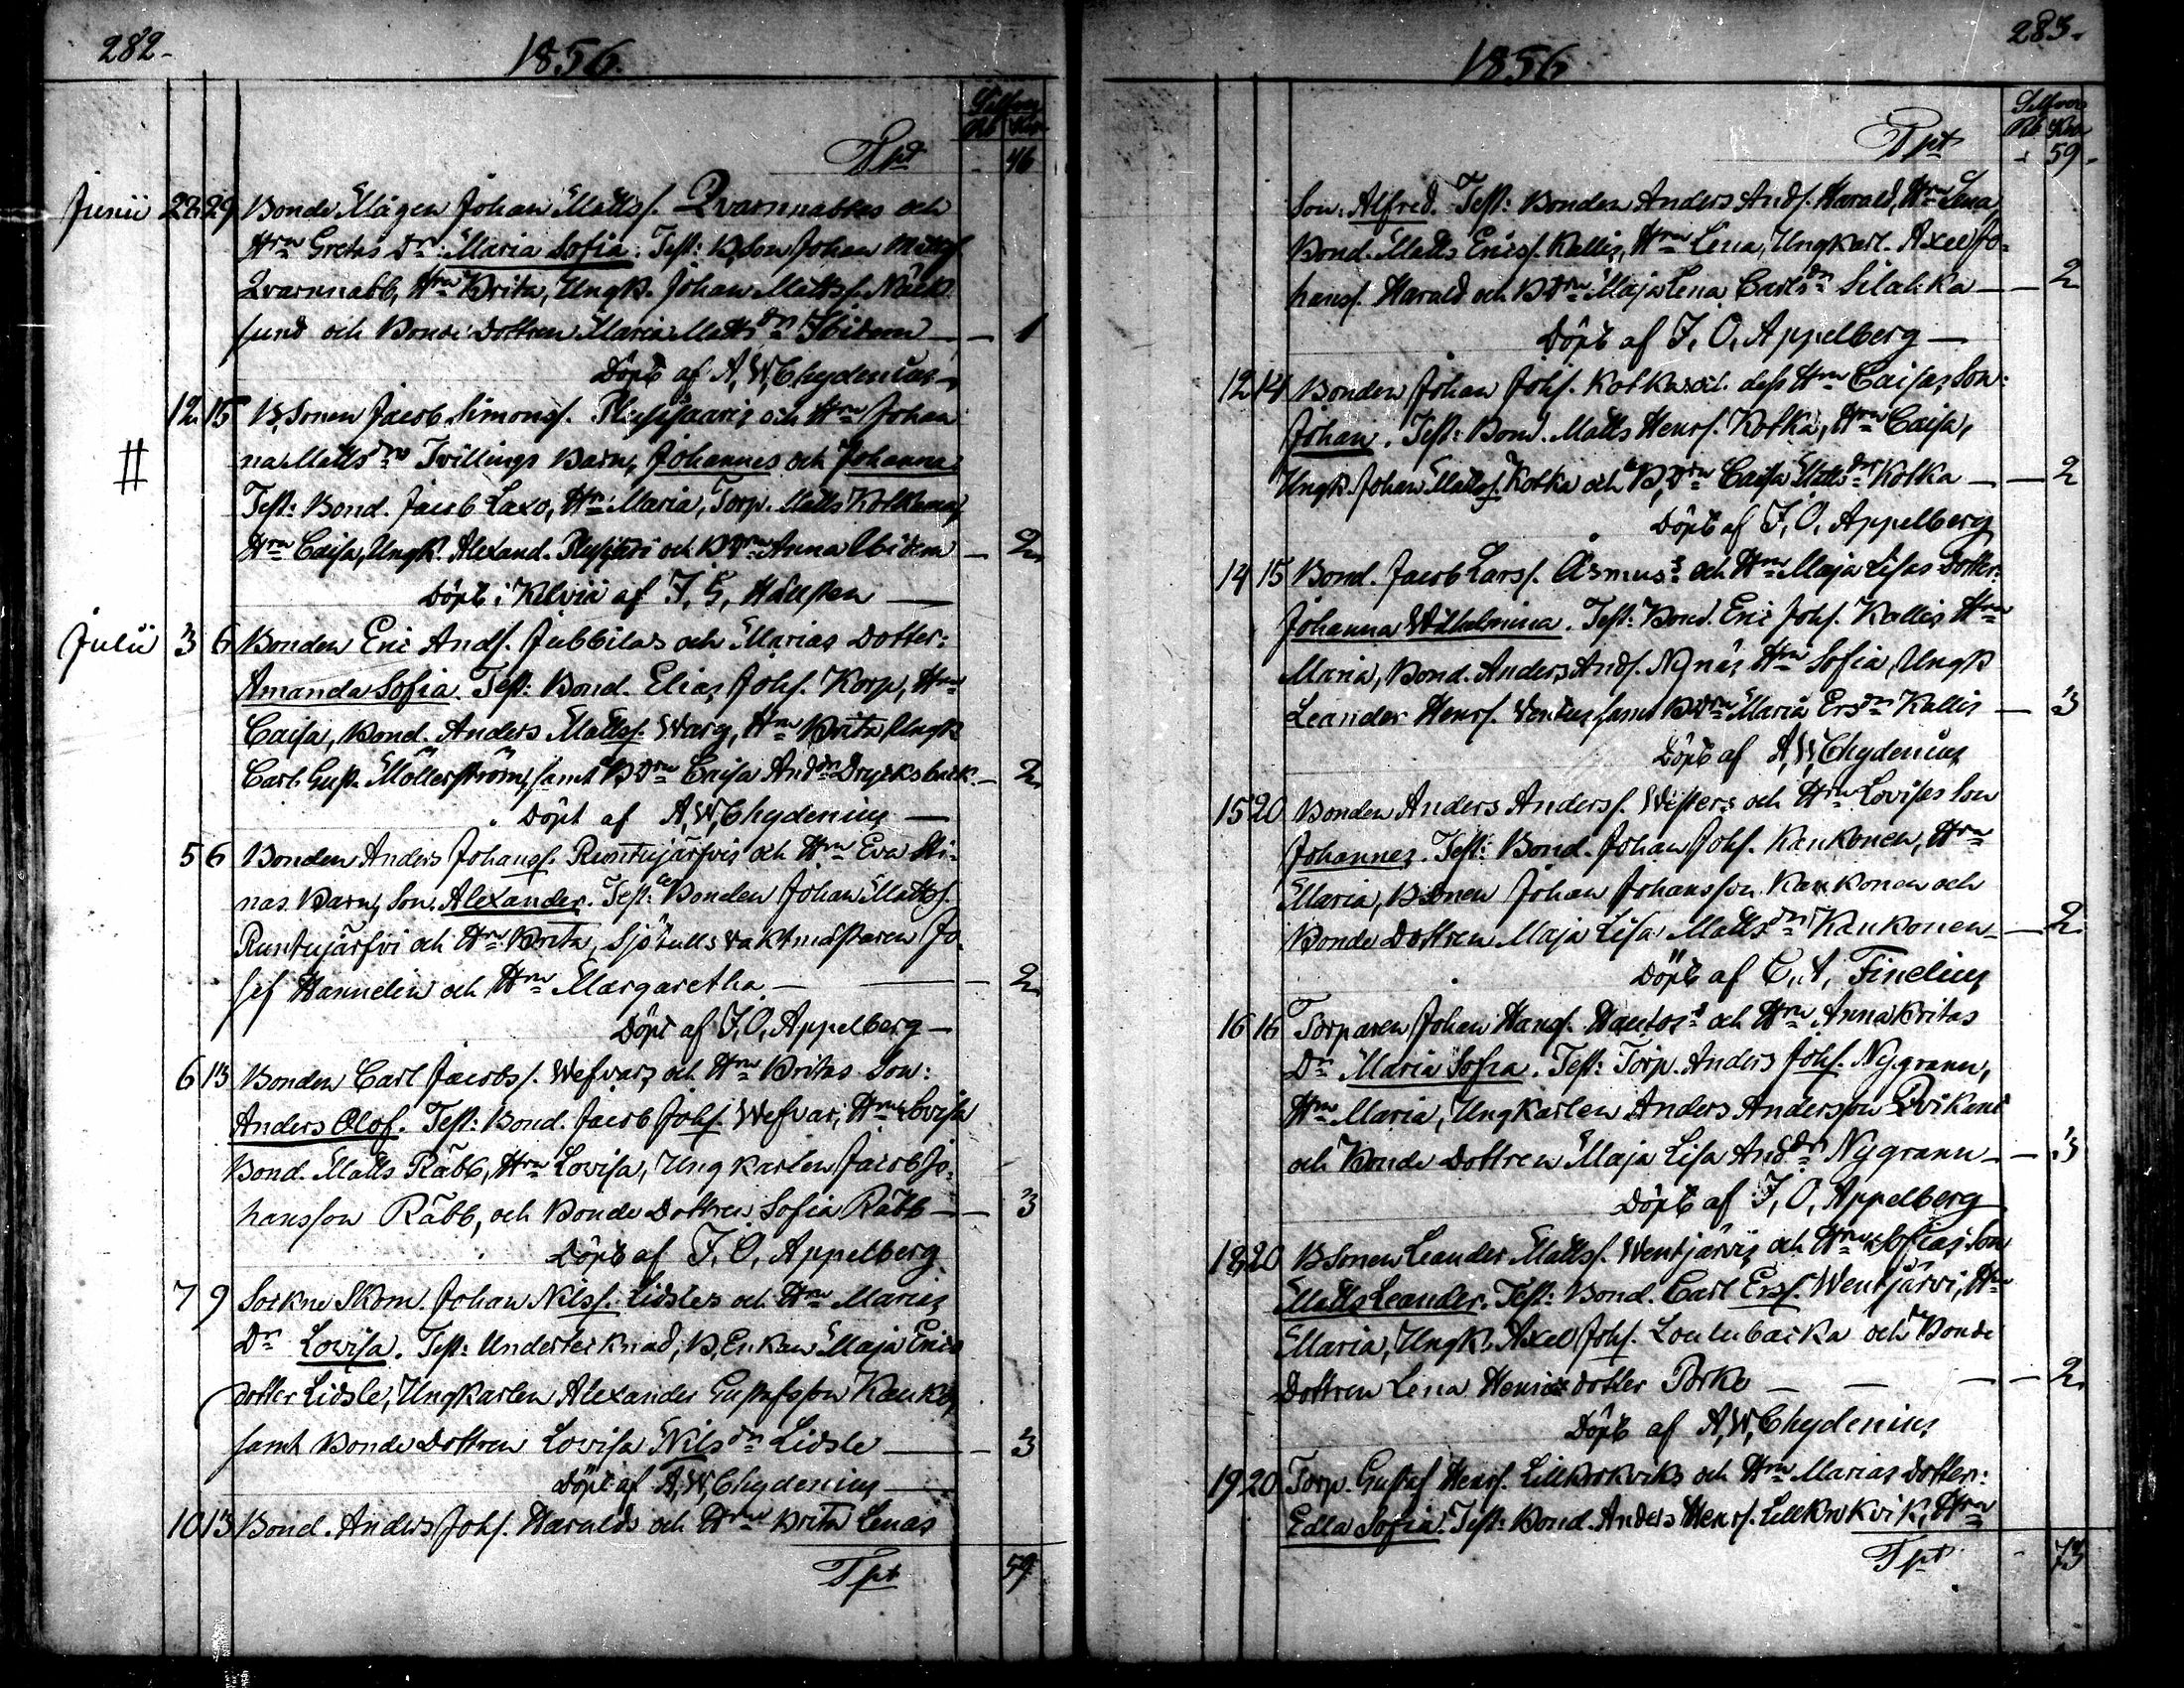 282.
1856.
Silfver
Rb Kop
Tpt 46
Junii 22 29 Bonde Mågen Johan Mattss. Qvarnnabbas och
Hrn Gretas Dr: Maria Sofia. Test: B,Son Johan Mattss
Qvarnnabb, Hrn Brita, Ungk. Johan Mattss. Näck
sund och Bonde Dottren Maria Mattsdr Ibidem — 1
Döpt af A, W, Chydenius
12 15 B,Sonen Jacob Simonss. Plusisaaris och Hrn Johan
# na Mattsdrs Tvillings Barn, Johannes och Johanna
Test: Bond. Jacob Laxo, Hrn Maria, Torp. Matts Kotkamaa
Hrn Caisa, Ungk. Alexand. och BDrn Anna Ibidem — 2
Döpt i Kelviå af F, G, Hällsten —
Julii 3 6 Bonden Eric Ands. Jubbilas och Marias Dotter:
Amanda Sofia. Test: Bond. Elias Johs. Korp, Hrn
Caisa, Bond. Anders Mattss. Warg, Hrn Brita, Ungk
Carl Gust. Möllerström, samt BDrn Caisa Andsdr Drycksbäck — 2
Döpt af A, W, Chydenius —
5 6 Bonden Anders Johanss. Runtujärfvis och Hrn Eva Sti-
nas Barn, Son. Alexander. Test: Bonden Johan Mattss.
Runtujärfvi och Hrn Brita, Sjötulls vaktmästaren Jo-
sef Hannelin och Hrn Margaretha — 2
Döpt af F, O, Appelberg —
6 13 Bonden Carl Jacobss. Wefvars och Hrn Britas Son:
Anders Olof. Test: Bond. Jacob Johs. Wefvar, Hrn Lovisa
Bond. Matts Räbb, Hrn Lovisa, Ungkarlen Jacob Jo-
hansson Räbb, och Bonde Dottren Sofia Räbb — 3
Döpt af F, O, Appelberg
7 9 Sockne Skom. Johan Nilss. Lidsles och Hrn Marias
Dr Lovisa. Test: Undertecknad, B,Enkan Maja Erics
dotter Lidsle, Ungkarlen Alexander Gustafsson Kauko,
samt Bonde Dottren Lovisa Nilsdr Lidsle — 3
Döpt af A, W, Chydenius —
10 13 Bond. Anders Johs. Haralds och Hrn Brita Lenas
Tpt 59
283.
1856
Silfver
Rb Kop
Tpt 59
Son: Alfred. Test: Bonden Anders Ands. Harald, Hrn Lena,
Bond. Matts Ericss. Kallis, Hrn Lena, Ungkarl. Axel Jo-
hanss. Harald och BDrn Maja Lena Carlsdr Silahka — 2
Döpt af F, O, Appelberg —
12 14 Bonden Johan Johs. Kotkas och dess Hrn Caisas Son:
Johan. Test: Bond. Matts Henrs. Kotka, Hrn Caisa,
Ungk. Johan Mattss. Kotka och B,Drn Caisa Mattsdr Kotka — 2
Döpt af F, O, Appelberg
14 15 Bond. Jacob Larss. Åsmuss och Hrn Maja Lisas Dotter:
Johanna Wilhelmina. Test: Bond. Eric Johs. Kallis, Hrn
Maria, Bond. Anders Ands. Nynäs, Hrn Sofia, Ungk
Leander Henrs. Ventus, samt BDrn Maria Ersdr Kallis — 3
Döpt af A, W, Chydenius
15 20 Bonden Anders Anderss. Wisters och Hrn Lovisas Son
Johannes. Test: Bond. Johan Johs. Kankonen, Hrn
Maria, BSonen Johan Johansson Kankonen och
Bonde Dottren Maja Lisa Mattsdr Kankonen — 2
Döpt af C, A, Finelius
16 16 Torparen Johan Hanss. Hautos och Hrn Anna Britas
Dr Maria Sofia. Test: Torp. Anders Johs. Nygrann,
Hrn Maria, Ungkarlen Anders Andersson Qvikant
och Bonde Dottren Maja Lisa Andsdr Nygrann — 3
Döpt af F, O, Appelberg
18 20 BSonen Leander Mattss. Wentjärvis och Hrn Sofias Son
Matts Leander. Test: Bond. Carl Erss. Wentjärvi, Hrn
Maria, Ungk. Axel Johs. Loulubacka och Bonde
Dottren Lena Henricsdotter Porko — 2
Döpt af A, W, Chydenius
19 20 Torp. Gustaf Henrs. Lillkorkviks och Hrn Marias Dotter:
Edla Sofia. Test: Bond. Anders Henrs. Lillkorkvik, Hrn
Tpt 73